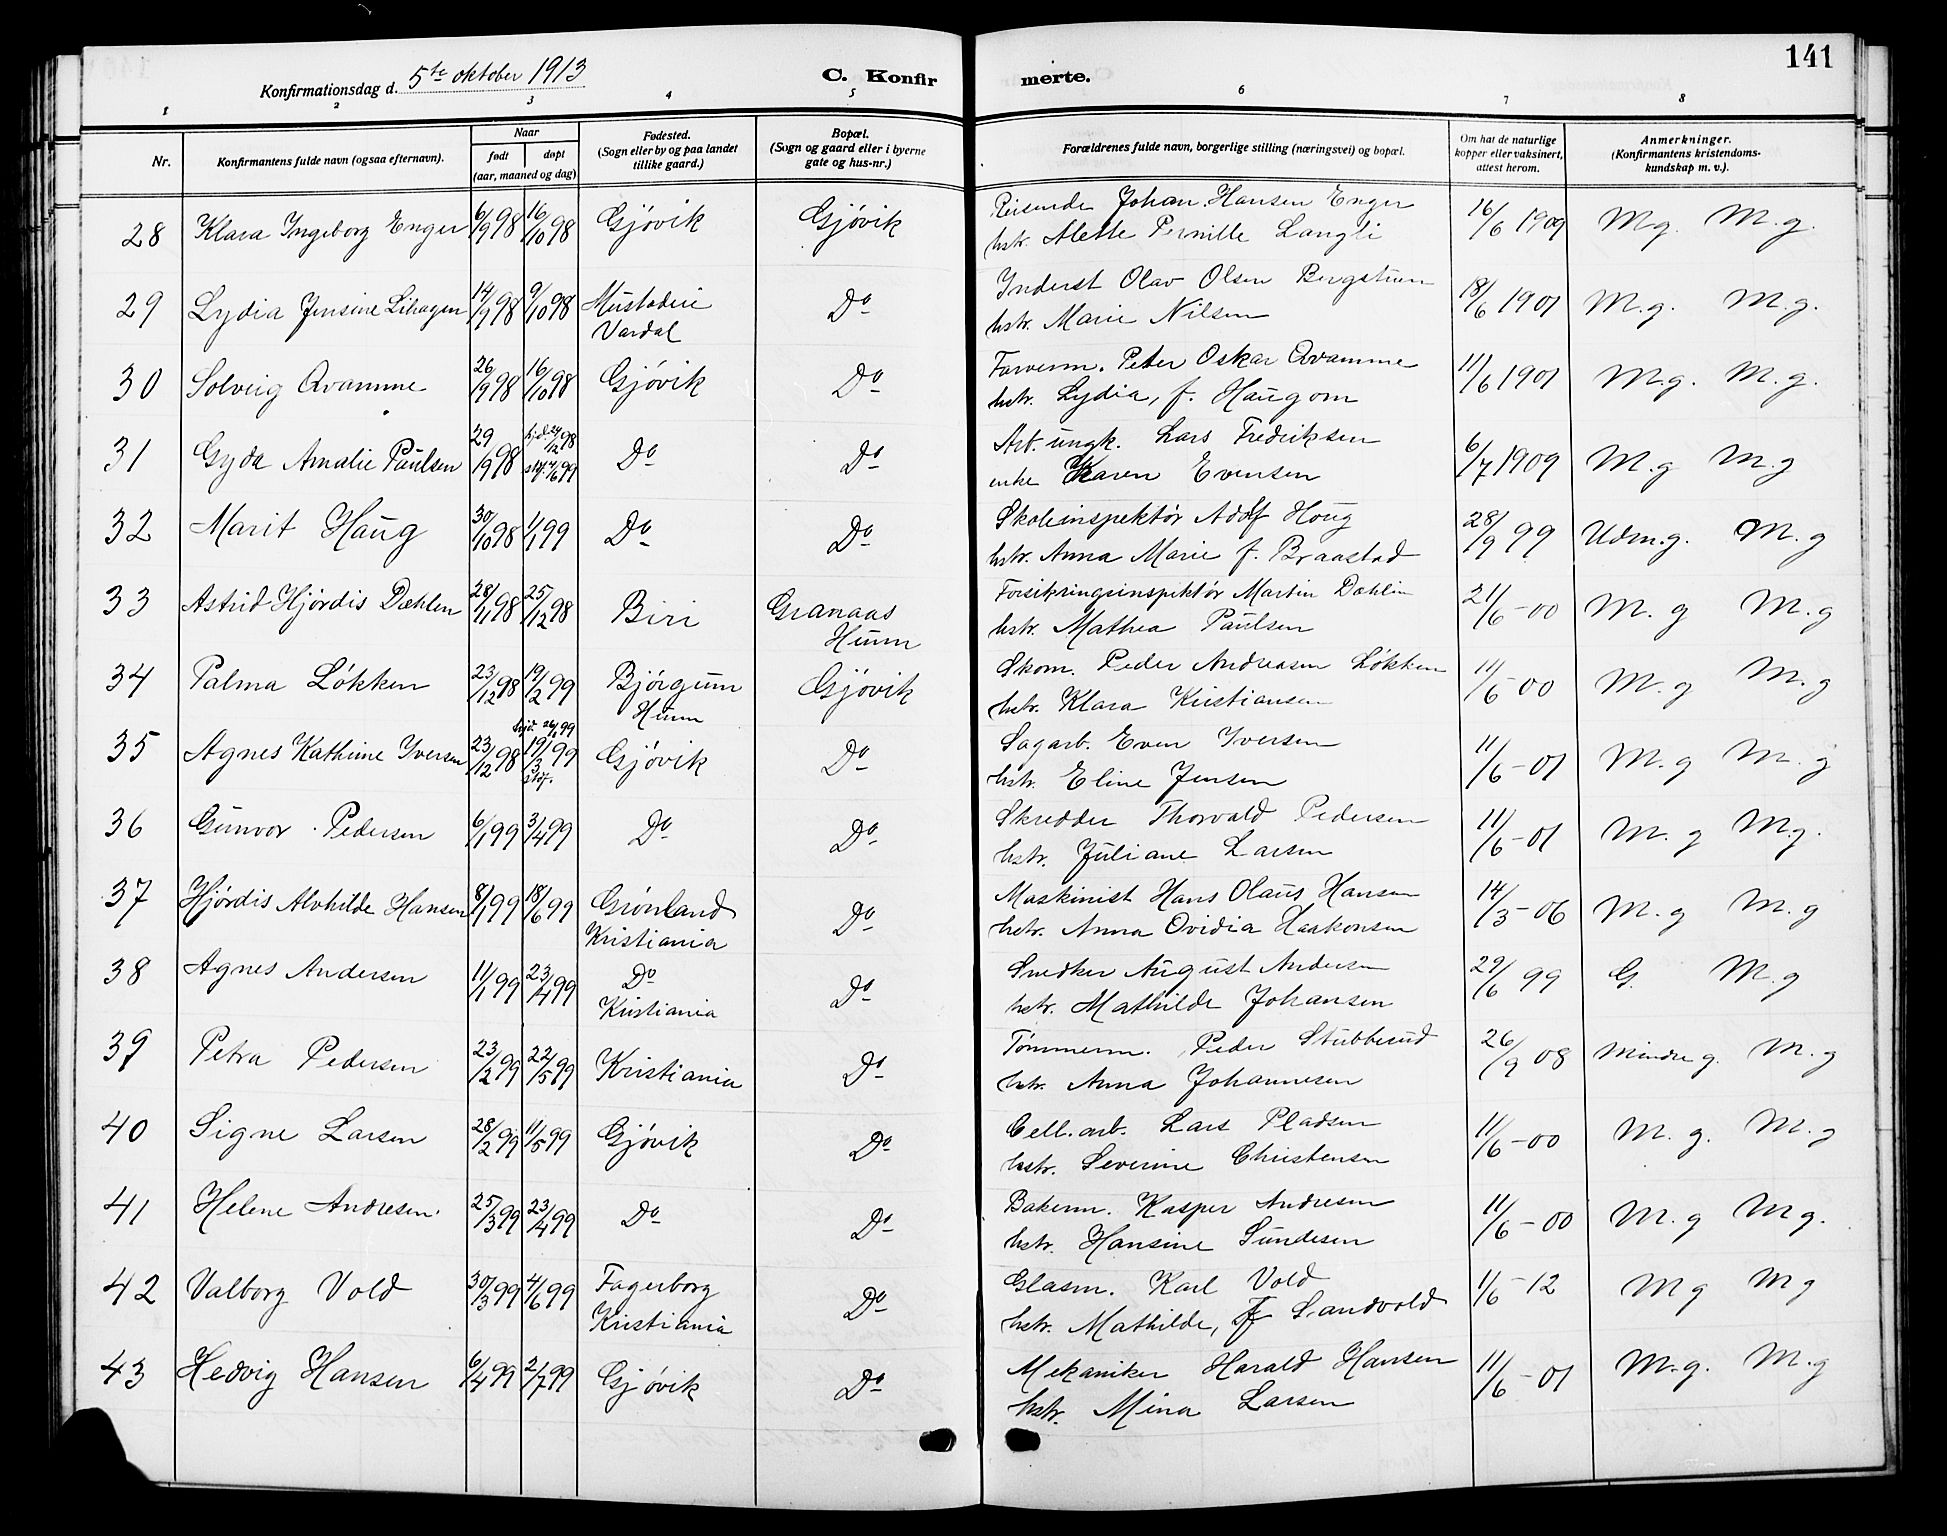 141
Konfirmationsdag d. 5te oktober 1913
C. Konfirmerte.
1 2 3 4 5 6 7 8
Nr.
Konfirmantens fulde navn (ogsaa efternavn).
Naar
født døpt
(aar, maaned og dag)
Fødested.
(Sogn eller by og paa landet
tillike gaard.)
Bopæl.
(Sogn og gaard eller i byerne
gate og hus-nr.)
Forældrenes fulde navn, borgerlige stilling (næringsvei) og bopæl.
Om hat de naturlige
kopper eller vaksinert,
attest herom.
Anmerkninger.
(Konfirmantens kristendoms-
kundskap m. v.).
28 Klara Ingeborg Enger 6/9 98 16/10 98 Gjøvik Gjøvik Reisende Johan Hansen Enger 16/6 1909 Mg. M.g.
hstr. Alette Pernille Langli
29 Lydia Jensine Lihagen 14/9 98 9/10 98 Mustadeie Do Inderst Olav Olsen Bergstuen 18/6 1901 M.g. M.g.
Vardal hstr. Marie Nilsen
30 Solveig Qvamme 26/9 98 16/10 98 Gjøvik Do Farverm. Peter Oskar Qvamme 11/6 1901 M.g. M.g.
hstr. Lydia, f. Haugom
31 Gyda Amalie Paulsen 29/9 98 hjd. 24/12 98 Do Do Arb. ungk. Lars Fredriksen 6/7 1909 M.g M.g
enke Karen Evensen
32 Marit Haug 30/10 98 1/1 99 Do Do Skoleinspektør Adolf Houg 28/9 99 Udm.g. M.g
hstr. Anna Marie f. Braastad
33 Astrid Hjørdis Dæhlen 28/11 98 25/12 98 Biri Granaas Forsikringsinspektør Martin Dæhlin 21/6-00 M.g M.g
Hunn hstr. Mathea Paulsen
34 Palma Løkken 23/12 98 19/2 99 Bjørgum Gjøvik Skom. Peder Andreasen Løkken 11/6-00 M.g M.g
Hunn hstr. Klara Kristiansen
35 Agnes Kathrine Iversen 23/12 98 hjd. 26/1 99 19/3 99 stdf. Gjøvik Do Sagarb. Even Iversen 11/6-01 M.g M.g
hstr. Eline Jensen
36 Gunvor Pedersen 6/1 99 3/4 99 Do Do Skredder Thorvald Pedersen 11/6-01 M.g M.g.
hstr. Juliane Larsen
37 Hjørdis Alvhilde Hansen 8/1 99 18/6 99 Grønland Do Maskinist Hans Olaus Hansen 14/3-06 M.g M.g
Kristiania hstr. Anna Ovidia Haakonsen
38 Agnes Andersen 11/1 99 23/4 99 Do Do Snedker August Andersen 29/6 99 G. M.g
Kristiania hstr. Mathilde Johansen
39 Petra Pedersen 23/2 99 22/5 99 Kristiania Do Tømmerm. Peder Stubberud 26/9 08 Mindre g. M.g
hstr. Anna Johannesen
40 Signe Larsen 28/2 99 11/5 99 Gjøvik Do Cell. arb. Lars Pladsen 11/6-00 M.g. M.g
hstr. Severine Christensen
41 Helene Andresen 25/3 99 23/4 99 Do Do Bakerm. Kasper Andresen 11/6-00 M.g Mg.
hstr. Hansine Sundesen
42 Valborg Vold 30/3 99 4/6 99 Fagerborg Do Glasm. Karl Vold 1/6-12 Mg Mg
Kristiania hstr. Mathilde, f Sandvold
43 Hedvig Hansen 6/4 99 2/7 99 Gjøvik Do Mekaniker Harald Hansen 11/6-01 M.g. M.g
hstr. Mina Larsen